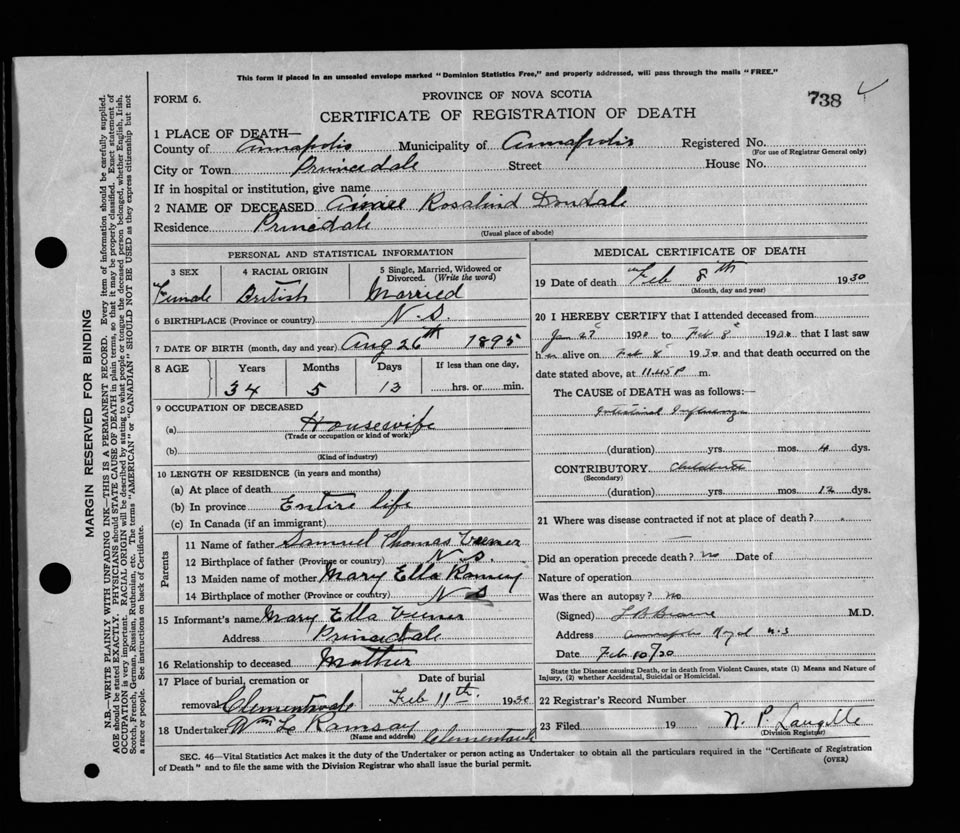 This form if placed in an unsealed envelope marked "Dominion Statistics Free," and properly addressed, will pass through the mails "FREE."
FORM 6.
PROVINCE OF NOVA SCOTIA
738
CERTIFICATE OF REGISTRATION OF DEATH
1 PLACE OF DEATH—
County of Annapolis Municipality of Annapolis Registered No.
(For use of Registrar General only)
City or Town Princedale Street House No.
If in hospital or institution, give name
2 NAME OF DECEASED Rosalind Dondale
Residence Princedale
(Usual place of abode)
PERSONAL AND STATISTICAL INFORMATION
3 SEX 4 RACIAL ORIGIN 5 Single, Married, Widowed or Divorced. (Write the word)
Female British Married
6 BIRTHPLACE (Province or country) N.S.
7 DATE OF BIRTH (month, day and year) Aug 26th 1895
8 AGE Years Months Days If less than one day,
34 5 13 hrs. or min.
9 OCCUPATION OF DECEASED
(a) Housewife
(Trade or occupation or kind of work)
(b)
(Kind of industry)
10 LENGTH OF RESIDENCE (in years and months)
(a) At place of death
(b) In province Entire life
(c) In Canada (if an immigrant)
Parents
11 Name of father Samuel Thomas
12 Birthplace of father (Province or country) N.S.
13 Maiden name of mother Mary Ella Ramsey
14 Birthplace of mother (Province or country) N S
15 Informant's name Mary Ella
Address Princedale
16 Relationship to deceased Mother
17 Place of burial, cremation or removal Date of burial
Clementsvale Feb 11th. 1930
18 Undertaker Wm L Ramsay Clementsvale
(Name and address)
MEDICAL CERTIFICATE OF DEATH
19 Date of death Feb 8th 1930
(Month, day and year)
20 I HEREBY CERTIFY that I attended deceased from
Jan 27 1930 to Feb 8 1930 that I last saw
her alive on Feb 8 1930 and that death occurred on the
date stated above, at 11.45 P m.
The CAUSE OF DEATH was as follows:—
Intestinal Influenza
(duration) yrs. mos. 4 dys.
CONTRIBUTORY Childbirth
(Secondary)
(duration) yrs. mos. 12 dys.
21 Where was disease contracted if not at place of death?
Did an operation precede death? no Date of
Nature of operation
Was there an autopsy? no
(Signed) M.D.
Address Annapolis Royal N.S
Date Feb 10/30
State the Disease causing Death, or in death from Violent Causes, state (1) Means and Nature of Injury, (2) whether Accidental, Suicidal or Homicidal.
22 Registrar's Record Number
23 Filed 19 N. P. Langille
(Division Registrar)
SEC. 46—Vital Statistics Act makes it the duty of the Undertaker or person acting as Undertaker to obtain all the particulars required in the "Certificate of Registration
of Death" and to file the same with the Division Registrar who shall issue the burial permit.
(OVER)
MARGIN RESERVED FOR BINDING
N.B.—WRITE PLAINLY WITH UNFADING INK—THIS IS A PERMANENT RECORD. Every item of information should be carefully supplied.
AGE should be stated EXACTLY. PHYSICIANS should STATE CAUSE OF DEATH in plain terms, so that it may be properly classified. Exact statement of
OCCUPATION is very important. RACIAL ORIGIN will be described by stating to what people or tongue the deceased person belonged, whether English, Irish,
Scotch, French, German, Russian, Ruthenian, etc. The terms "AMERICAN" or "CANADIAN" SHOULD NOT BE USED as they express citizenship but not
a race or people. See instructions on back of Certificate.